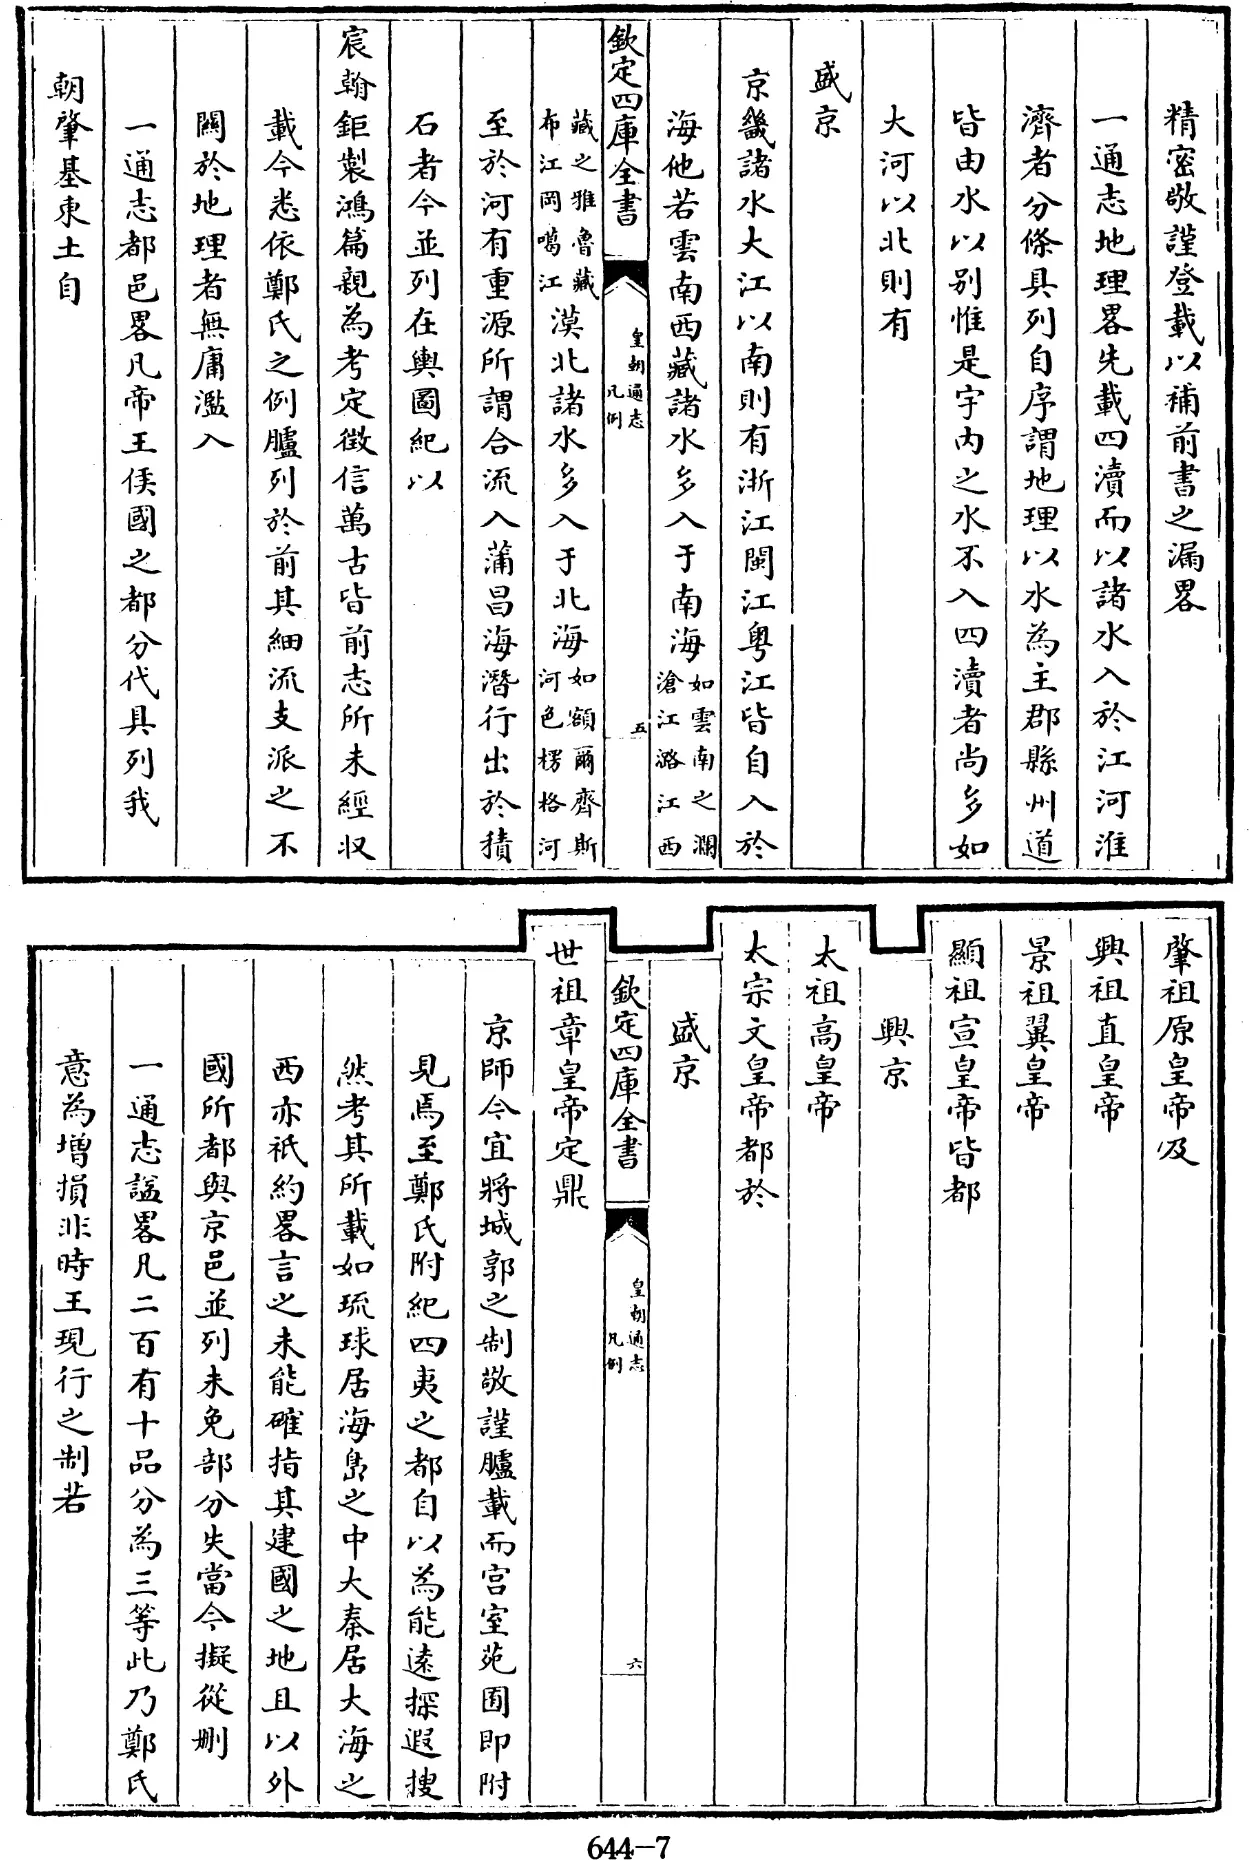 精密敬謹登載以補前書之漏畧
一通志地理畧先載四瀆而以諸水入於江河淮
濟者分條具列自序謂地理以水為主郡縣州道
皆由水以别惟是宇内之水不入四瀆者尚多如
大河以北則有
盛京
京畿諸水大江以南則有浙江閩江粤江皆自入於
海他若雲南西藏諸水多入于南海如雲南之瀾
滄江潞江西
欽定四庫全書
皇朝通志
凡例
五
藏之雅魯藏
布江岡噶江漠北諸水多入于北海如額爾齊斯
河色楞格河
至於河有重源所謂合流入蒲昌海潛行出於積
石者今並列在輿圖紀以
宸翰鉅製鴻篇親為考定徴信萬古皆前志所未經収
載今悉依鄭氏之例臚列於前其細流支派之不
關於地理者無庸濫入
一通志都邑畧凡帝王侯國之都分代具列我
朝肇基東土自
肇祖原皇帝及
興祖直皇帝
景祖翼皇帝
顯祖宣皇帝皆都
興京
太祖高皇帝
太宗文皇帝都於
盛京
欽定四庫全書
皇朝通志
凡例
六
世祖章皇帝定鼎
京師今宜將城郭之制敬謹臚載而宫室苑囿即附
見焉至鄭氏附紀四夷之都自以為能遠探遐搜
然考其所載如琉球居海島之中大秦居大海之
西亦祇約畧言之未能確指其建國之地且以外
國所都與京邑並列未免部分失當今擬從刪
一通志諡畧凡二百有十品分為三等此乃鄭氏
意為增損非時王現行之制若
644-7